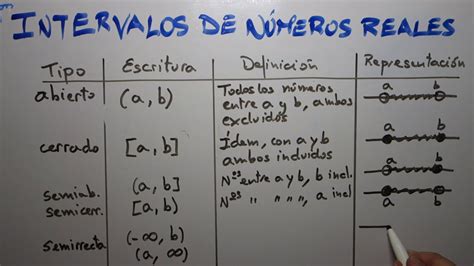 INTERVALOS DE NÚMEROS REALES
Tipo Escritura Definición Representación
abierto (a, b) Todos los números
entre a y b, ambos
excluidos
a b
cerrado [a, b] Ídem, con a y b
ambos incluidos
a b
semiab. (a, b] Nºs entre a y b, b incl.
a b
semicerr. [a, b) Nºs " " " ", a incl
a b
semirrecta (-∞, b)
(a, ∞)